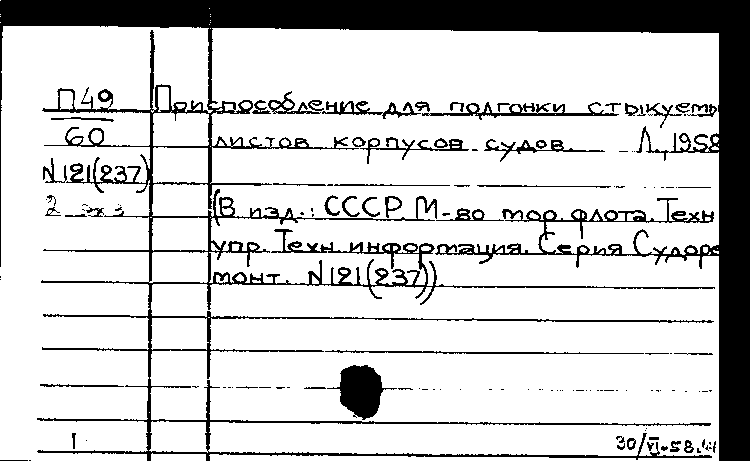 П49
60
N121(237)
2 экз
Приспособление для подгонки стыкуемы
листов корпусов судов. Л., 1958
(В изд.: СССР. М-во мор. флота. Техн
упр. Техн. информация. Серия Судоре
монт. N121(237)).
1
30/VI-58.